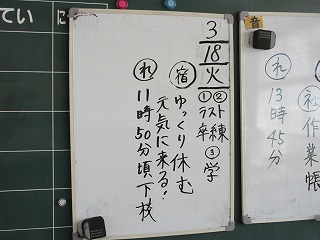 3/18火
①ラスト
②卒練
③学
㊟宿 ゆっくり休む
元気に来る!
れ 11時50分頃下校
音
れ 13時45分
ネ 作業帳
てい
に